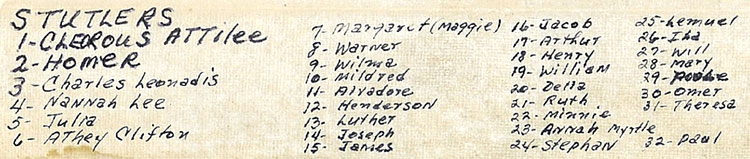 STUTLERS
1- CLEROUS ATTILEE
2- HOMER
3- Charles Leonadis
4- Nannah Lee
5- Julia
6- Athey Clifton
7- Margaret (Maggie)
8- Warner
9- Wilma
10- Mildred
11- Alvadore
12- Henderson
13- Luther
14- Joseph
15- James
16- Jacob
17- Arthur
18- Henry
19- William
20- Della
21- Ruth
22- Minnie
23- Annah Myrtle
24- Stephan
25- Lemuel
26- Iha
27- Will
28- Mary
29-
30- Omer
31- Theresa
32- Paul